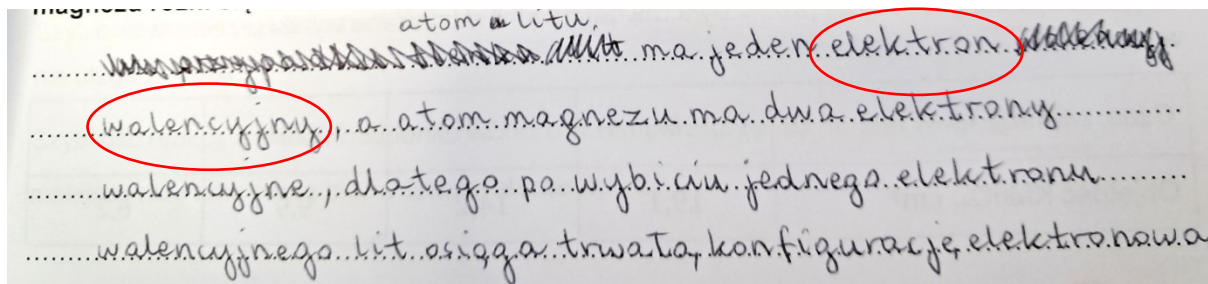 atom litu
ma jeden elektron
walencyjny, a atom magnezu ma dwa elektrony
walencyjne, dlatego po wybiciu jednego elektronu
walencyjnego lit osiąga trwałą konfigurację elektronowa